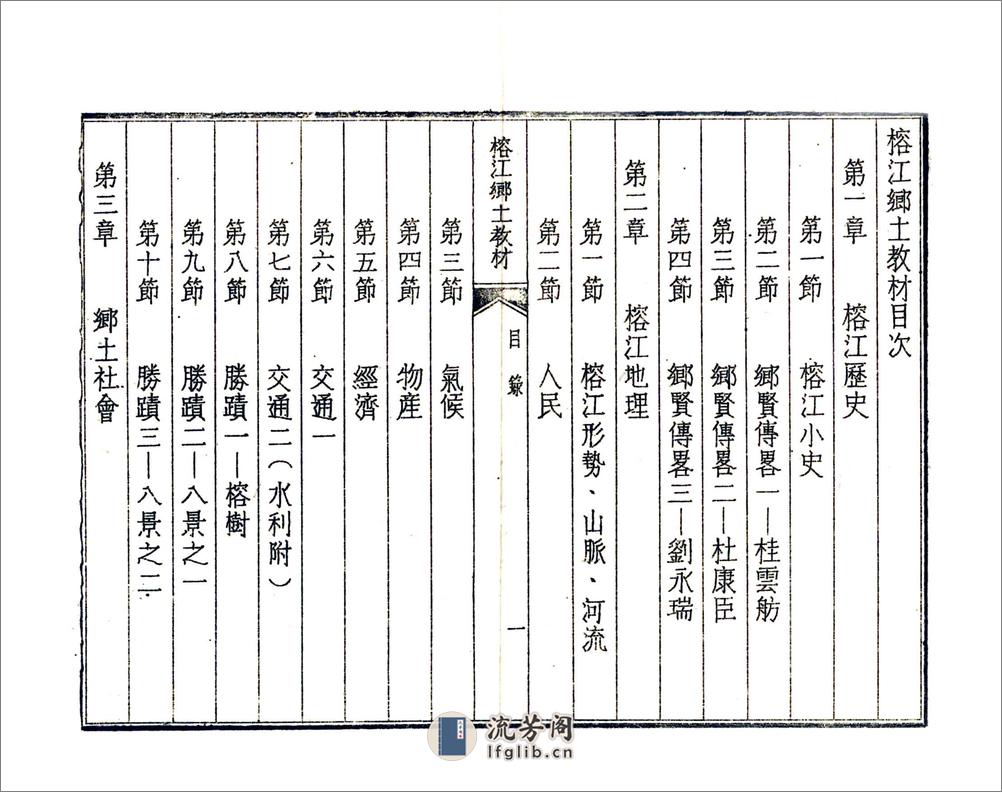 榕江鄉土教材目次
第一章　榕江歷史
第一節　榕江小史
第二節　鄉賢傳畧一—桂雲舫
第三節　鄉賢傳畧二—杜康臣
第四節　鄉賢傳畧三—劉永瑞
第二章　榕江地理
第一節　榕江形勢、山脈、河流
第二節　人民
榕江鄉土教材　目錄　一
第三節　氣候
第四節　物産
第五節　經濟
第六節　交通一
第七節　交通二（水利附）
第八節　勝蹟一—榕樹
第九節　勝蹟二—八景之一
第十節　勝蹟三—八景之二
第三章　鄉土社會
流芳阁
lfglib.cn